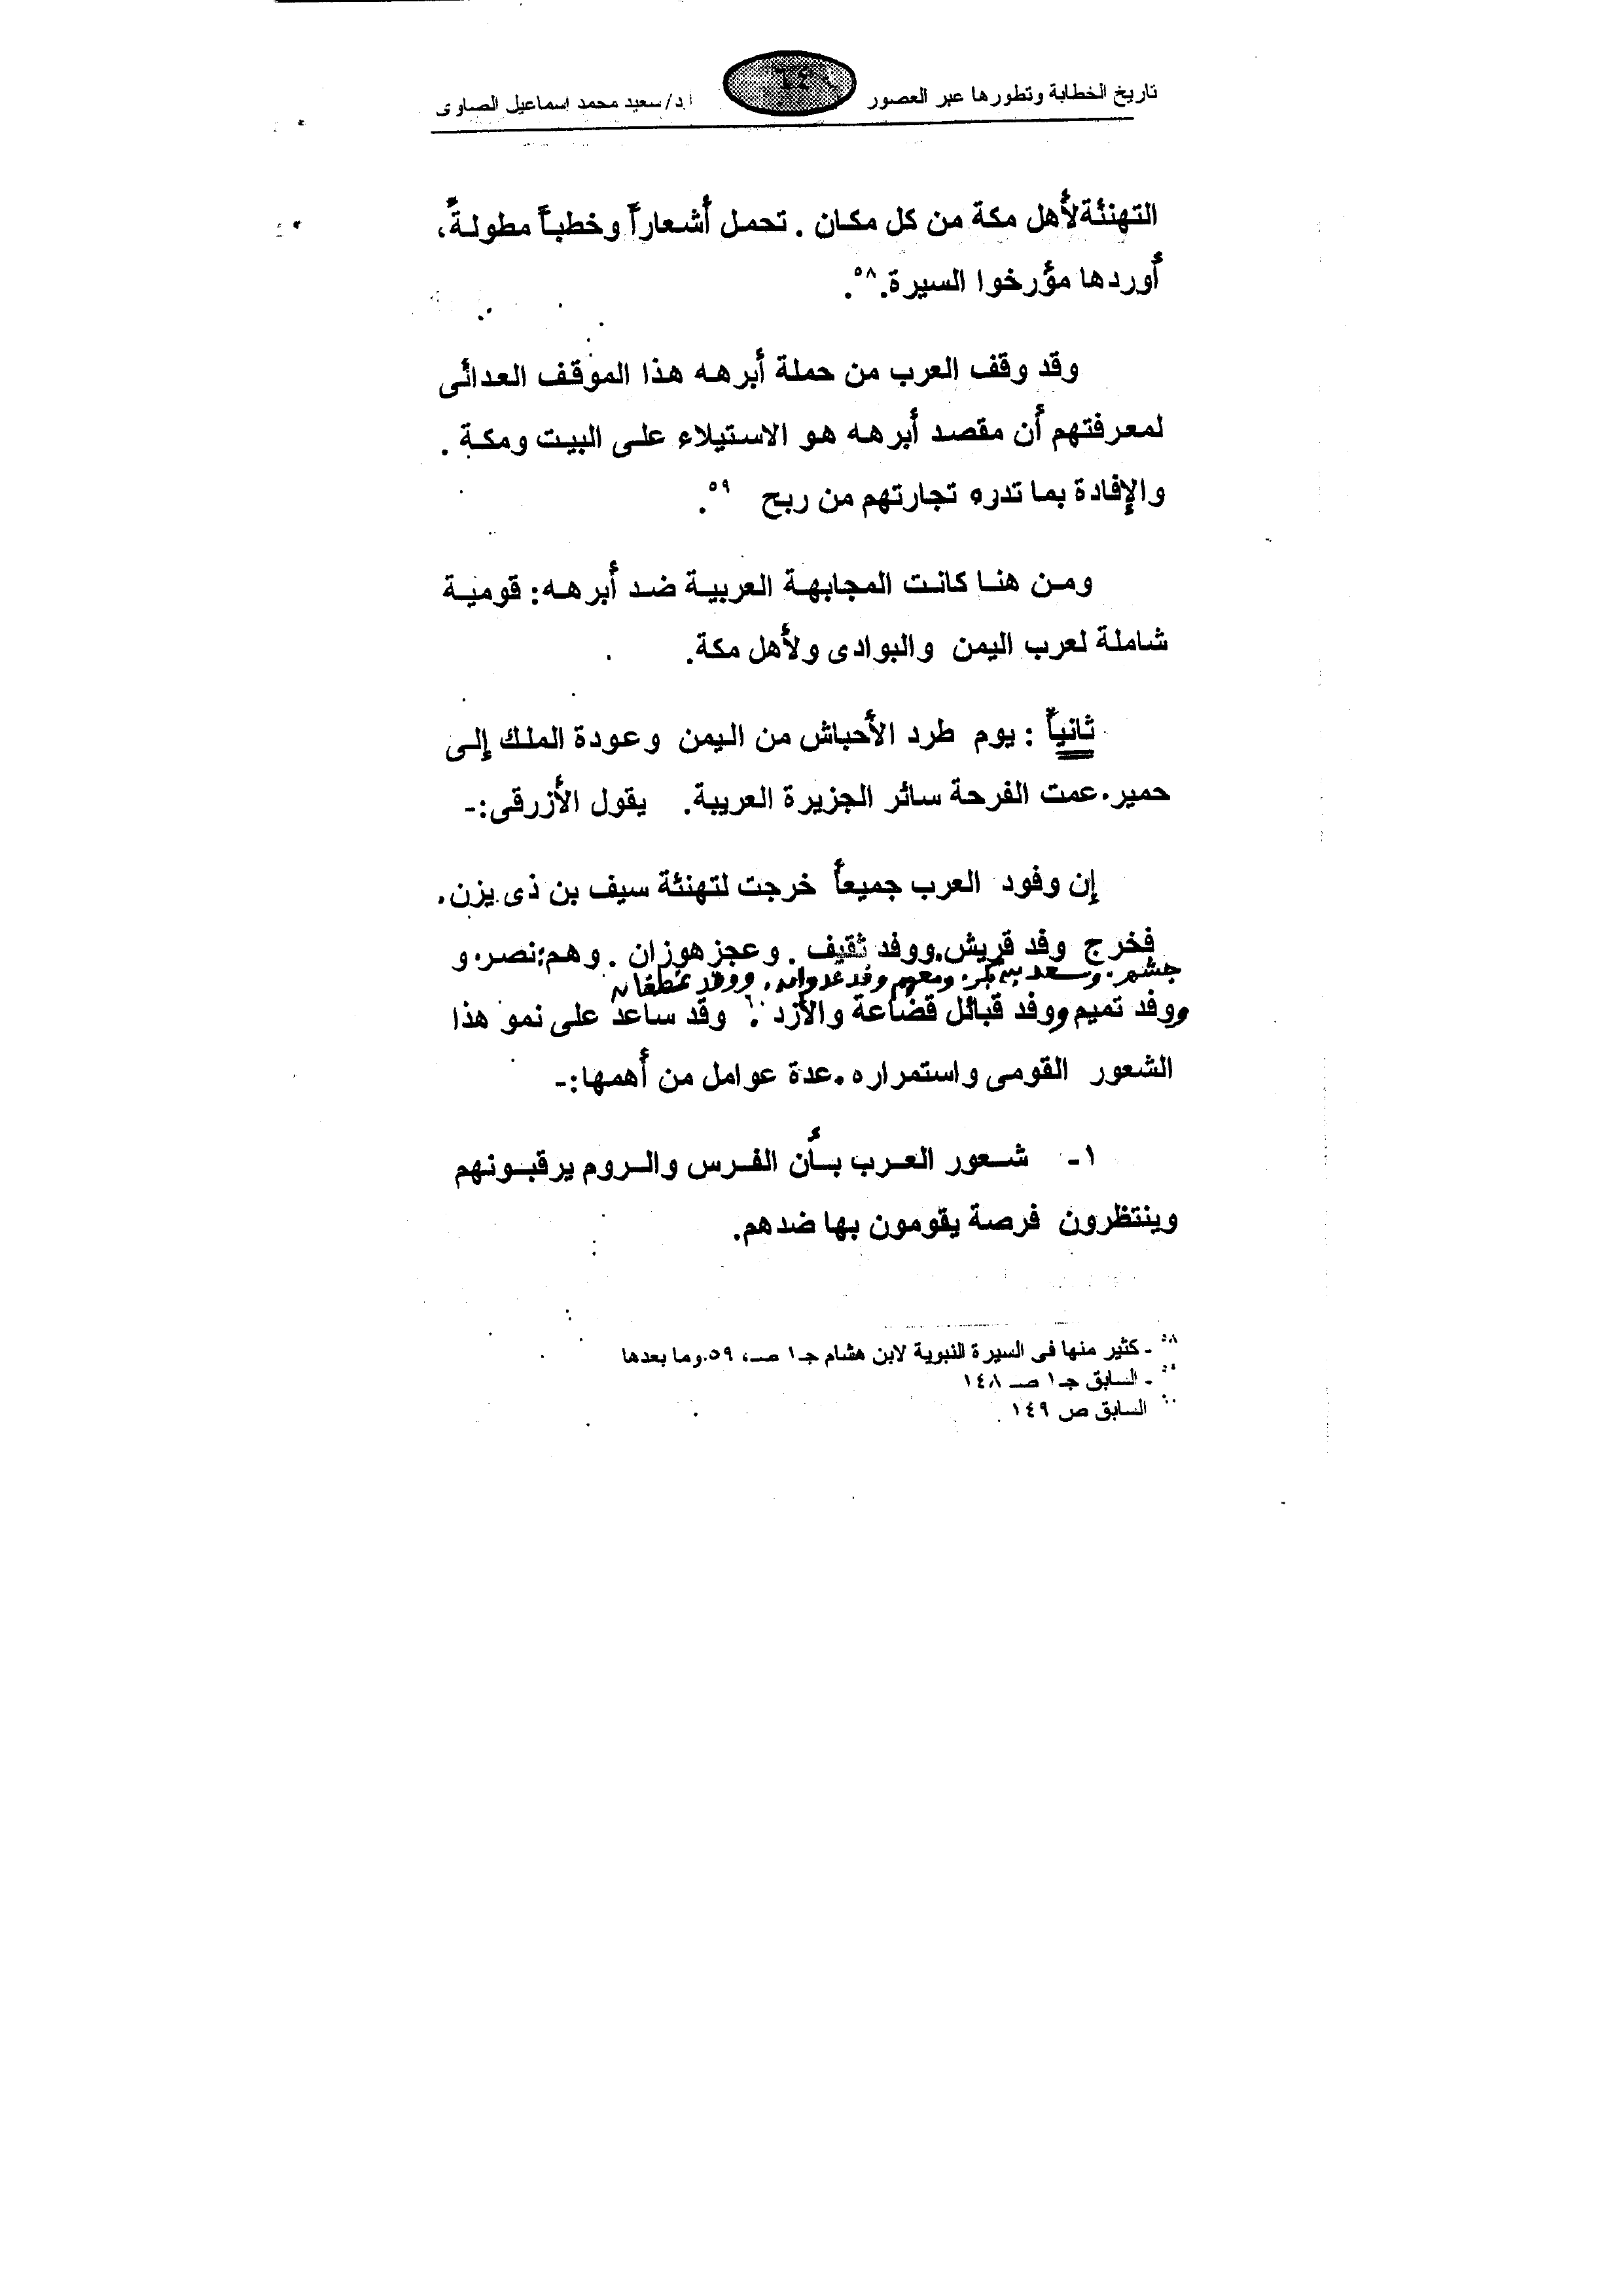 تاريخ الخطابة وتطورها عبر العصور ٦٤ ا.د/سعيد محمد إسماعيل الصاوى
التهنئة لأهل مكة من كل مكان . تحمل أشعاراً وخطباً مطولةً،
أوردها مؤرخوا السيرة.٥٨.
وقد وقف العرب من حملة أبرهه هذا الموقف العدائى
لمعرفتهم أن مقصد أبرهه هو الاستيلاء على البيت ومكة .
والإفادة بما تدره تجارتهم من ربح ٥٩.
ومن هنا كانت المجابهة العربية ضد أبرهه: قومية
شاملة لعرب اليمن والبوادى ولأهل مكة.
ثانياً : يوم طرد الأحباش من اليمن وعودة الملك إلى
حمير. عمت الفرحة سائر الجزيرة العربية. يقول الأزرقى:-
إن وفود العرب جميعاً خرجت لتهنئة سيف بن ذى يزن.
فخرج وفد قريش.ووفد ثقيف . وعجز هوزان . وهم:نصر. و
جشم. وسعد بن بكر. ومعهم وفد عدوان. ووفد غطفان
ووفد تميم ووفد قبائل قضاعة والأزد ٦٠. وقد ساعد على نمو هذا
الشعور القومى واستمراره .عدة عوامل من أهمها:-
١- شعور العرب بأن الفرس والروم يرقبونهم
وينتظرون فرصة يقومون بها ضدهم.
٥٨ - كثير منها فى السيرة النبوية لابن هشام جـ١ صـ، ٥٩.وما بعدها
٥٩ - السابق جـ١ صـ ١٤٨
٦٠ السابق ص ١٤٩